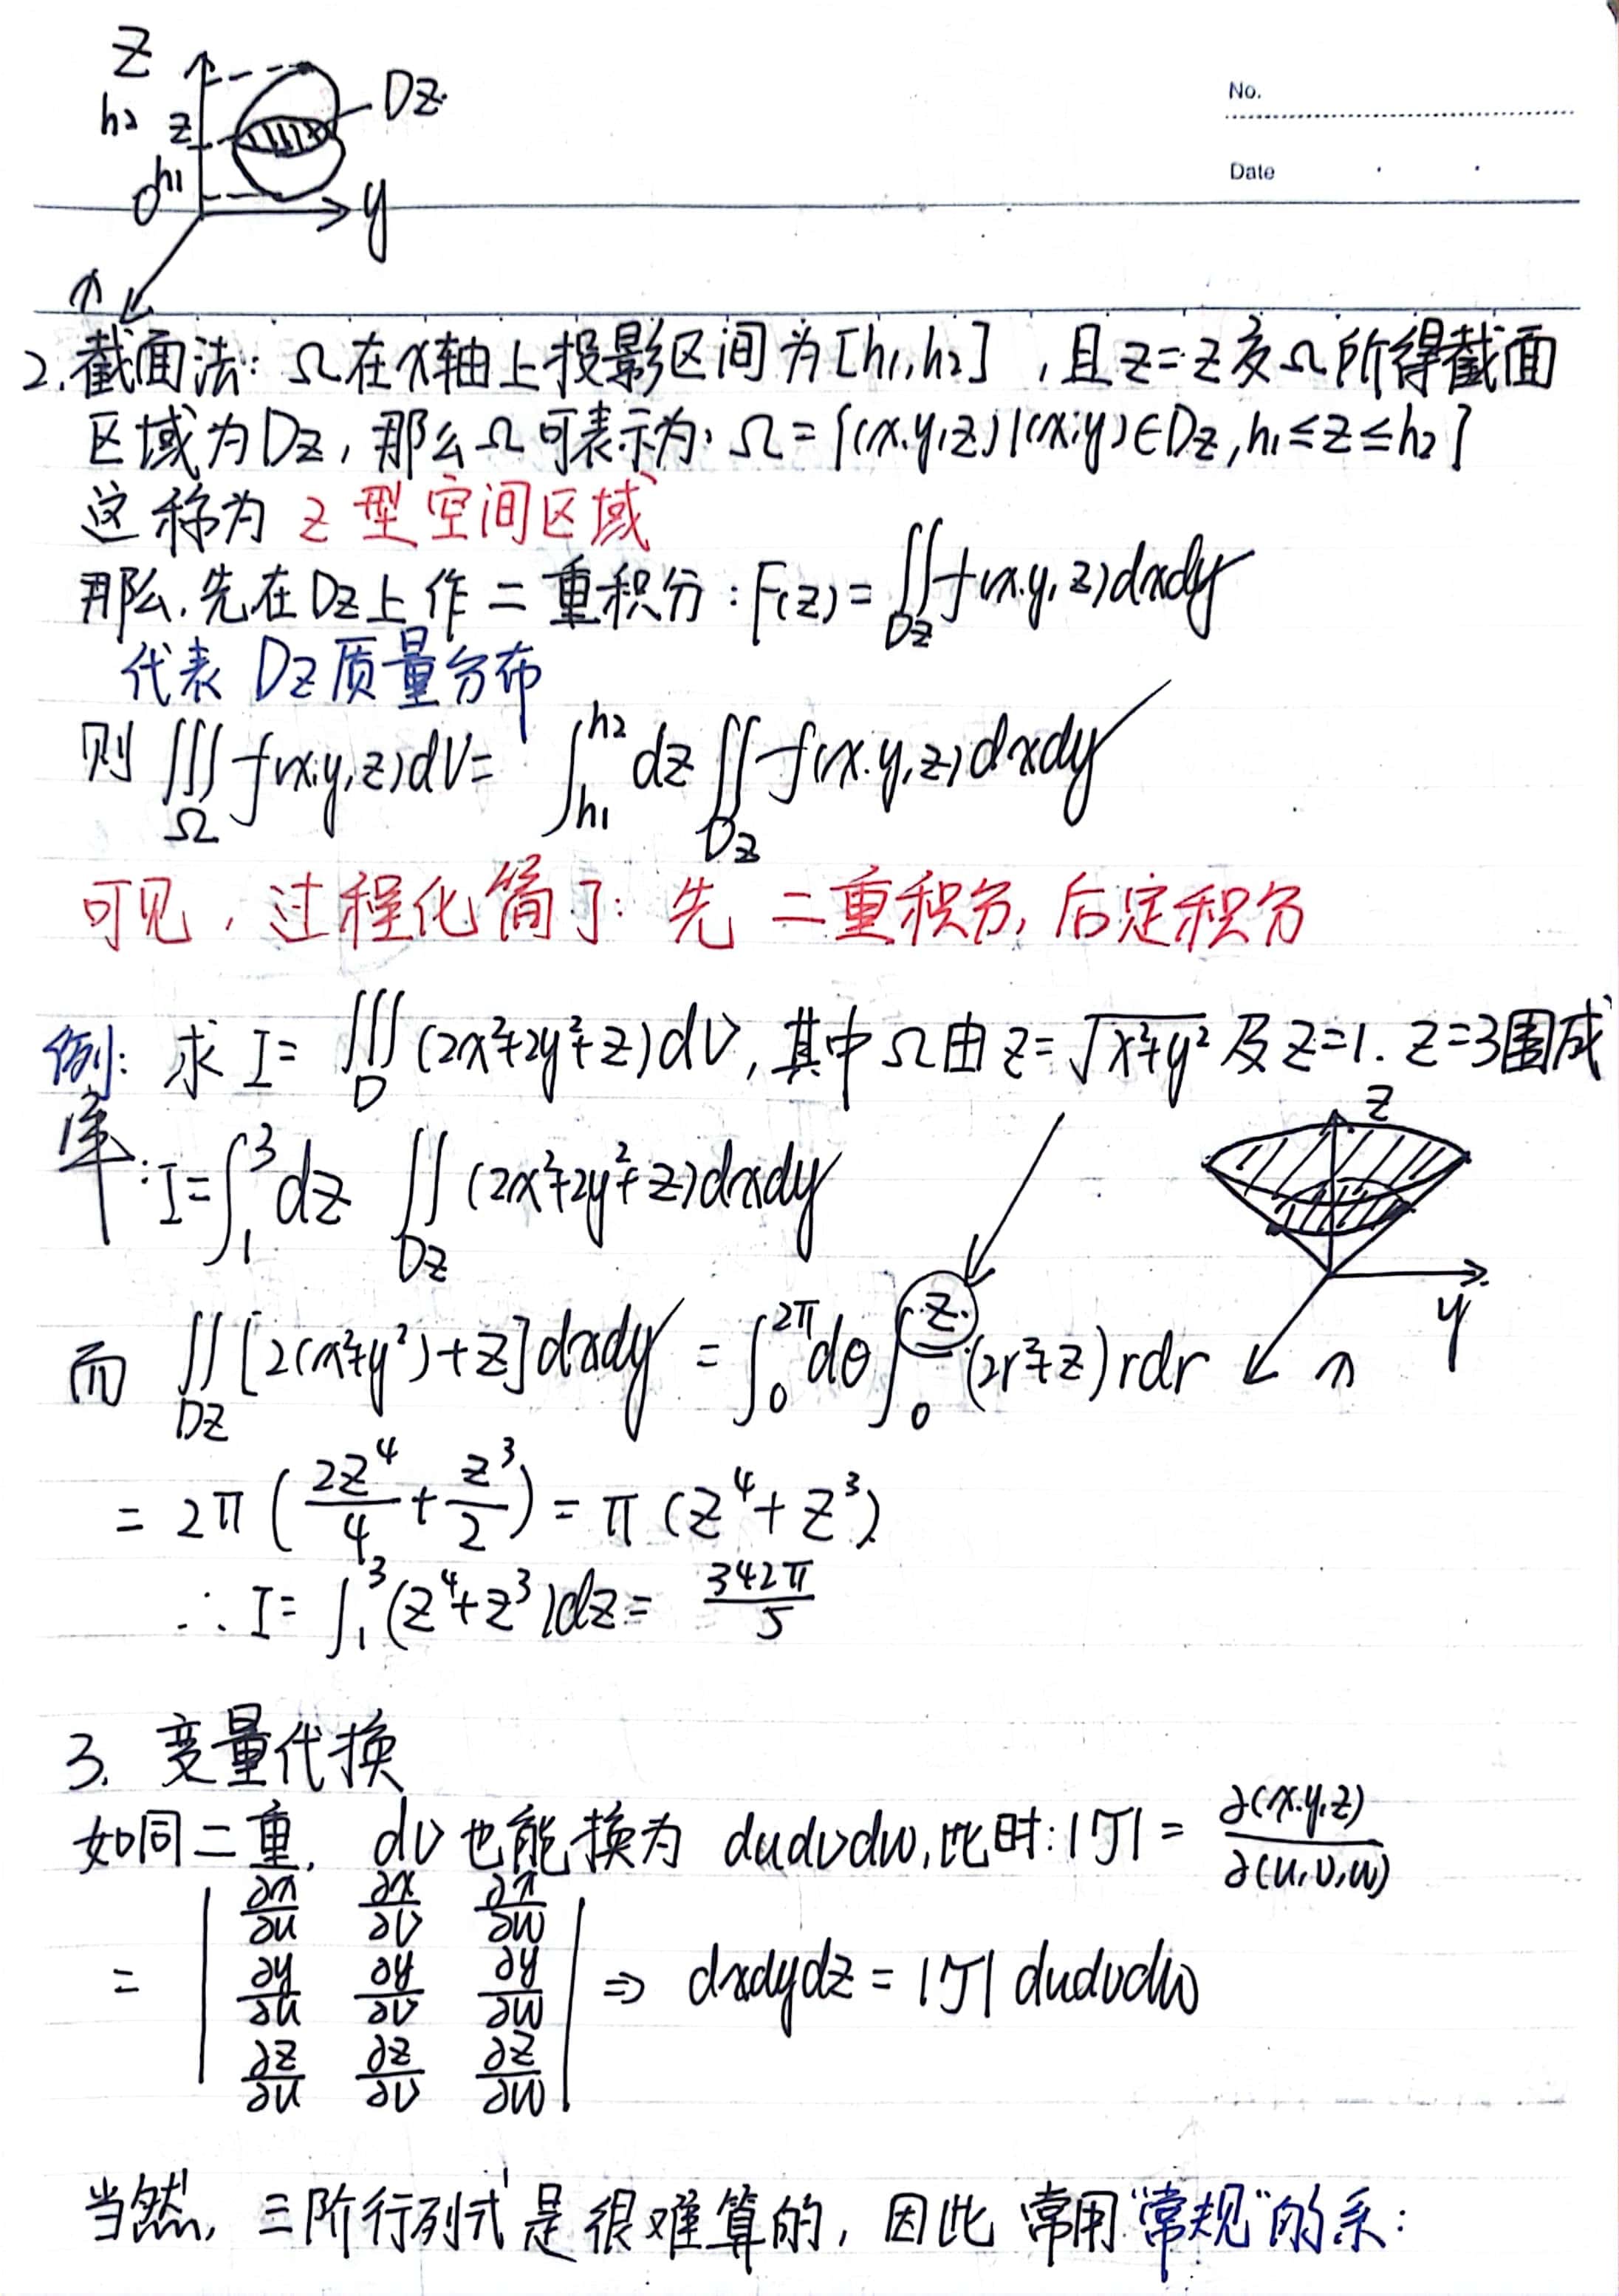 No.
Date
z
h2 z
Dz.
h1
O
y
x
2.截面法: Ω在x轴上投影区间为[h1,h2],且z=z交Ω所得截面
区域为Dz,那么Ω可表示为:Ω={(x.y,z)|(x,y)∈Dz,h1≤z≤h2}
这称为 z型空间区域
那么.先在Dz上作二重积分:F(z)=∬_{Dz} f(x.y,z)dxdy
代表Dz质量分布
则 ∭_Ω f(x,y,z)dV= ∫_{h1}^{h2} dz ∬_{Dz} f(x.y,z)dxdy
可见,过程化简了:先 二重积分,后定积分
例: 求 I= ∭_D (2x²+2y²+z)dV,其中Ω由z=√(x²+y²)及z=1. z=3围成
z
I=∫_1^3 dz ∬_{Dz} (2x²+2y²+z)dxdy
y
x
而 ∬_{Dz} [2(x²+y²)+z]dxdy = ∫_0^{2π} dθ ∫_0^z (2r²+z)rdr
= 2π(2z⁴/4 + z³/2) = π(z⁴+z³)
∴ I= ∫_1^3 (z⁴+z³)dz= 342π/5
3. 变量代换
如同二重, dv也能换为 dudvdw,此时:|J| = ∂(x.y,z)/∂(u,v,w)
= | ∂x/∂u ∂x/∂v ∂x/∂w |
| ∂y/∂u ∂y/∂v ∂y/∂w | ⇒ dxdydz = |J| dudvdw
| ∂z/∂u ∂z/∂v ∂z/∂w |
当然,三阶行列式是很难算的,因此 常用“常规”的系: